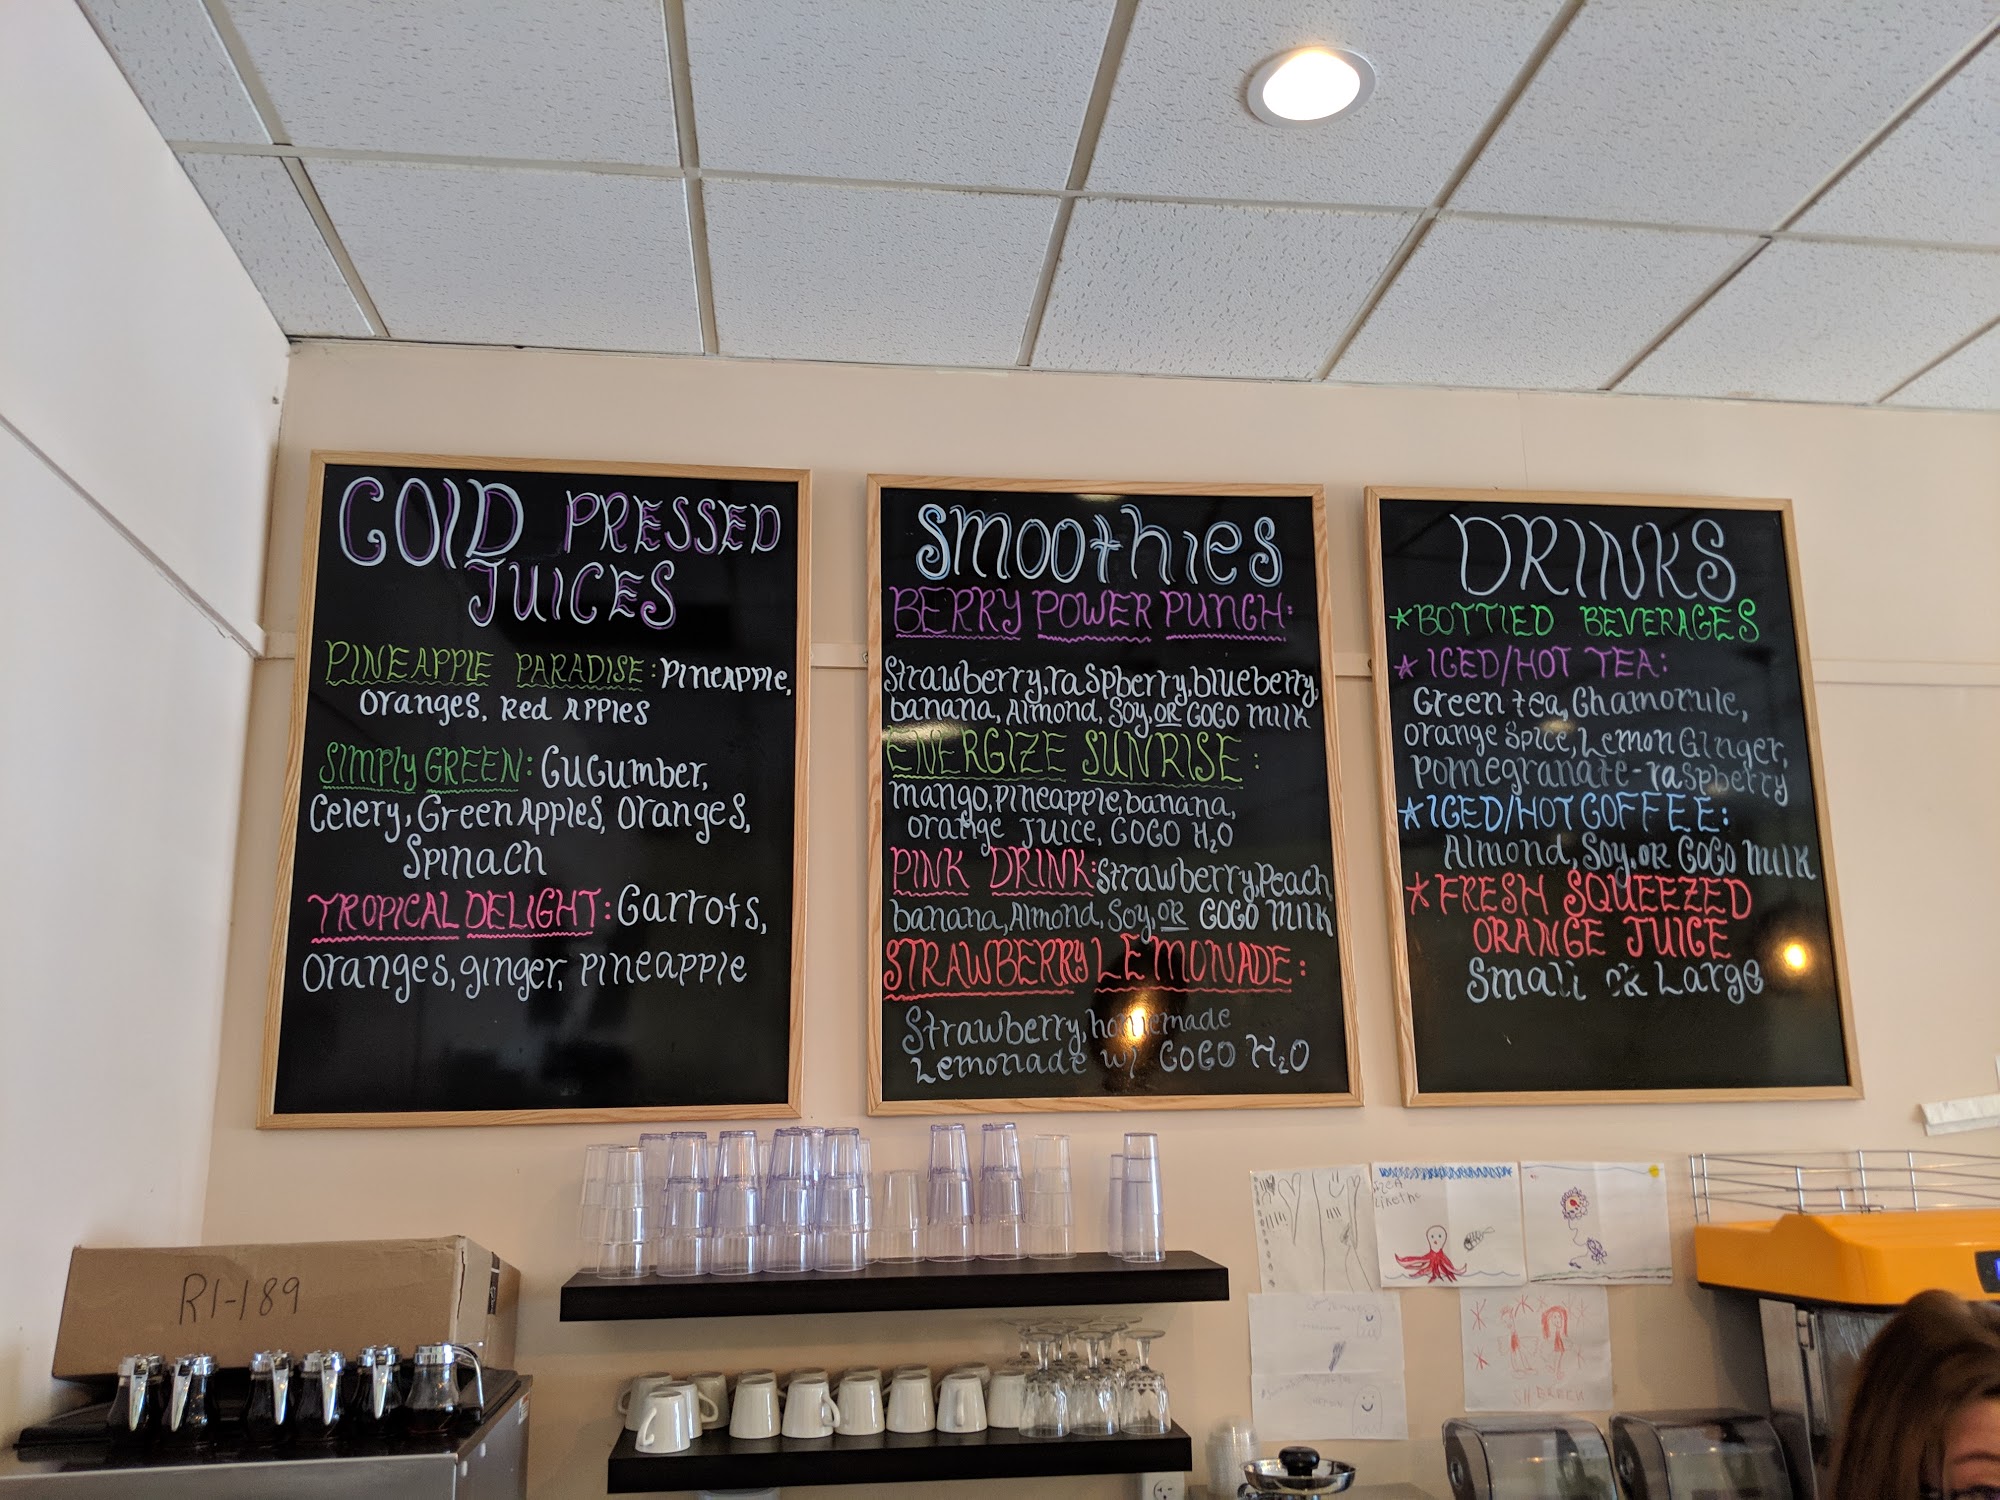 COLD PRESSED
JUICES
PINEAPPLE PARADISE: PINEAPPLE,
Oranges, Red Apples
SIMPLY GREEN: Cucumber,
Celery, Green Apples, Oranges,
Spinach
TROPICAL DELIGHT: Carrots,
Oranges, ginger, pineapple
Smoothies
BERRY POWER PUNCH:
Strawberry, raspberry, blueberry,
banana, Almond, Soy, OR COCO MILK
ENERGIZE SUNRISE:
mango, pineapple, banana,
orange JUICE, COCO H₂O
PINK DRINK: Strawberry, Peach
banana, Almond, Soy, OR COCO MILK
STRAWBERRY LEMONADE:
Strawberry, homemade
Lemonade w/ COCO H₂O
DRINKS
*BOTTLED BEVERAGES
*ICED/HOT TEA:
Green tea, Chamomile,
orange Spice, Lemon Ginger,
Pomegranate-raspberry
*ICED/HOT COFFEE:
Almond, Soy, OR COCO MILK
*FRESH SQUEEZED
ORANGE JUICE
Small OR Large
R1-189